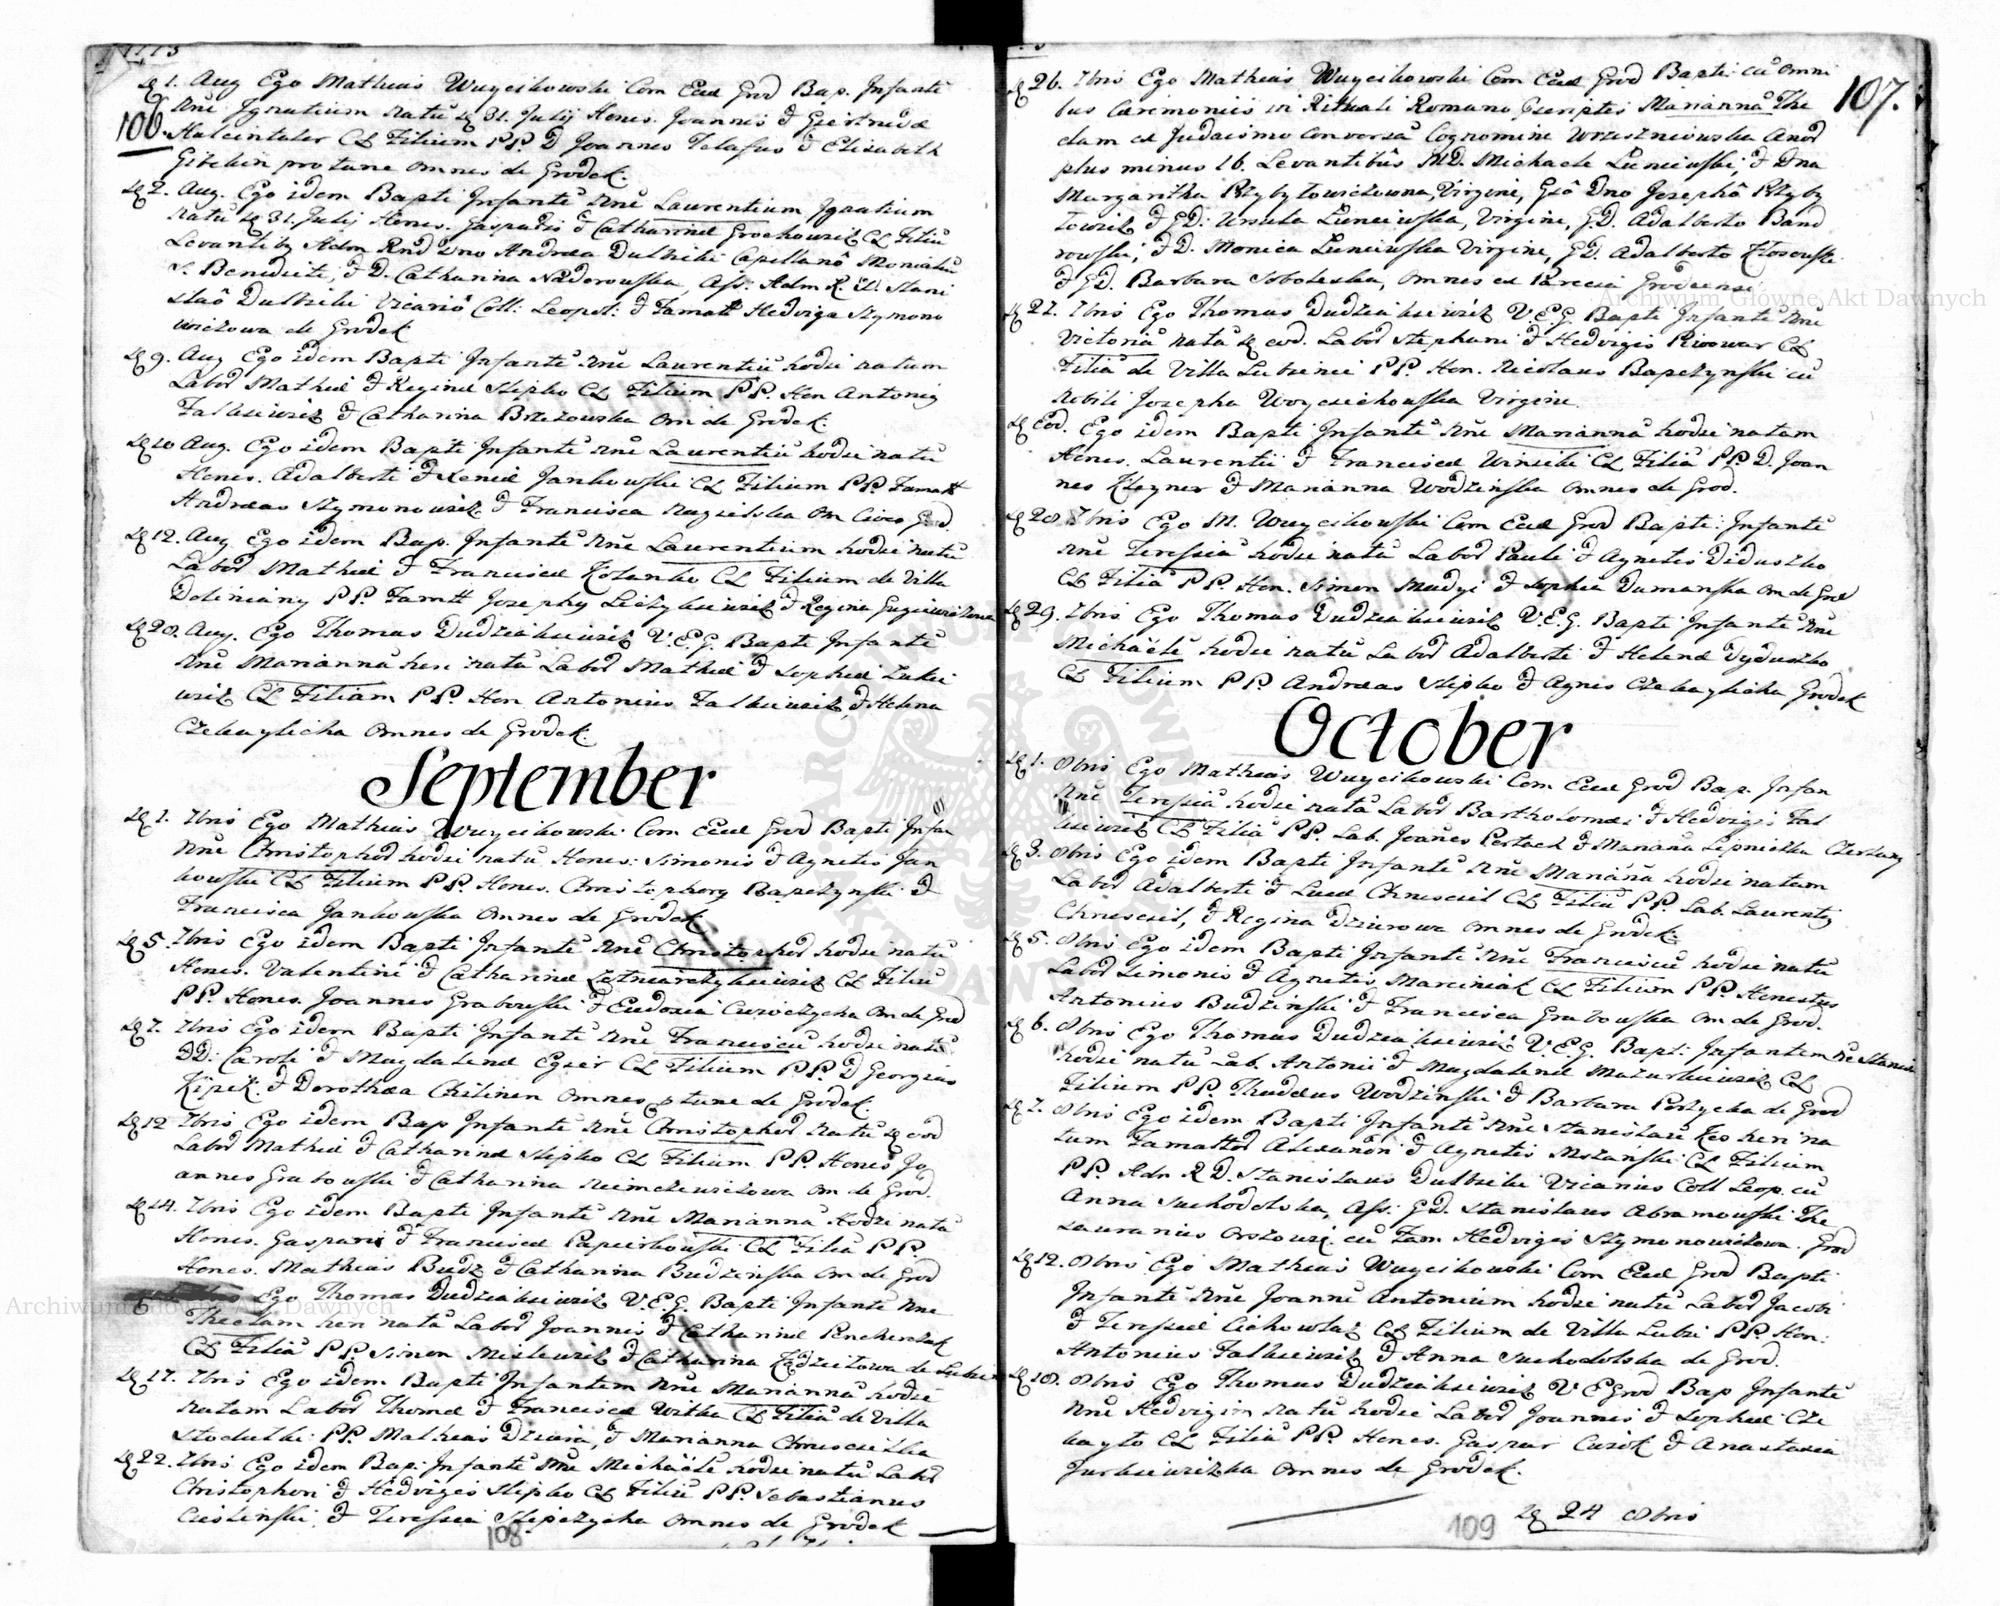 1775
106.
D 1. Aug Ego Mathias Wuycikowski Com Eccl Grod Bap. Infantē
Nñe Ignatium natū D 31. Julij Hones. Joannis & Gertrudæ
CL Filium PP. D Joannes Telafus & Elisabeth
protunc Omnes de Grodek.
D 2. Aug. Ego idem Bapti Infantē Nñe Laurentium Ignatium
natū D 31. Julij Hones. Gasparis & Catharinæ Grochowicz CL Filiū
Levantib Adm Rnd Dno Andrea Dulski Capellanô Monialiū
S. Benedicti, & D. Catharina Naderowska, Ass: Adm R. D. Stani
slaô Dulski Vicariô Coll: Leopol: & Famatt Hedviga Szymono
wiczowa de Grodek
D 9. Aug Ego idem Bapti Infantē Nñe Laurentiū hodie natum
Labor Mathiæ & Reginæ Slipko CL Filium PP. Hon Antonij
Falkiewicz & Catharina Brzezowska Om de Grodek.
D 10 Aug. Ego idem Bapti Infantē Nñe Laurentiū hodie natū
Hones. Adalberti & Xeniæ Jankowski CL Filium PP. Famatt
Andreas Szymonowicz & Francisca Om Cives Grod.
D 12. Aug Ego idem Bap. Infantē Nñe Laurentium hodie natū
Labor Mathiæ & Franciscæ Kolanko CL Filium de Villa
Doliniany PP. Famtt Josephy & Regina
D 20. Aug. Ego Thomas Dudziakiewicz V.E.G. Bapti Infantē
Nñe Mariannā heri natā Labor Mathiæ & Sophiæ Zukie
wicz CL Filiam PP. Hon Antonius Falkiewicz, & Helena
Czekaylicha Omnes de Grodek.
September
D 1. 7bris Ego Mathias Wuycikowski Com Eccl Grod Bapti Infan
Nñe Christophor hodie natū Hones: Simonis & Agnetis Jan
kowski CL Filium PP. Hones. Christophory Bapczynski &
Francisca Jankowska Omnes de Grodek
D 5. 7bris Ego idem Bapti Infantē Nñe Christophor hodie natū
Hones. Valentini & Catharinæ CL Filiū
PP. Hones. Joannes Grabowski & Eudoxia Om de Grod
D 7. 7bris Ego idem Bapti Infantē Nñe Franciscū hodie natū
DD: Caroli & Magdalenæ Egier CL Filium PP. D Georgius
& Dorothæa Omnes ptunc de Grodek.
D 12 7bris Ego idem Bap Infantē Nñe Christophor natū D eod
Labor Mathiæ & Catharinæ Slipko CL Filium PP. Hones Jo
annes Grabowski & Catharina Om de Grod.
D 14. 7bris Ego idem Bapti Infantē Nñe Mariannā Hodie natā
Hones. Gaspari & Franciscæ Papeirkowski CL Filiā PP.
Hones. Mathias Budz & Catharina Budzinska Om de Grod
Ego Thomas Dudziakiewicz V.E.G. Bapti Infantē Nñe
Theclam heri natā Labor Joannis & Catharinæ
CL Filiā PP. Simon & Catharina
D 17. 7bris Ego idem Bapti Infantem Nñe Mariannā hodie
natam Labor Thomæ & Franciscæ Witka CL Filiā de Villa
PP. Mathias & Marianna
D 22. 7bris Ego idem Bap: Infantē Nñe Michaëlē hodie natū Labor
Christophori & Hedvigis Slipko CL Filiū PP. Sebastianus
& Teressia Omnes de Grodek
108
107.
D 26. 7bris Ego Mathias Wuycikowski Com Eccl Grod Bapti: cū Omni
bus Ceremoniis in Rituali Romano pscriptis Mariannā The
clam ex Judaismo Conversā Cognomine Wrzesniowska Anor
plus minus 16. Levantibus MD. Michaele Luniewski, & Dna
Margaritha Przybylowiczowna, Virgine, GD Dno Josephô Przyby
lowicz & GD: Ursula Luniewska, Virgine, GD. Adalberto Band
rowski, & D. Monica Luniewska Virgine, GD. Adalberto Klosowski
& GD. Barbara Soboleska, Omnes ex Parecia Grodecensi
D 27. 7bris Ego Thomas Dudziakiewicz V.E.G. Bapti Infantē Nñe
Victoriā natā D eod. Labor Stephani & Hedvigis Piwowar CL
Filiā de Villa Lubienie PP. Hon. Nicolaus Bapczynski cū
Nobili Josepha Woyciechowska Virgine.
D Eod. Ego idem Bapti Infantē Nñe Mariannā hodie natam
Hones. Laurentii & Franciscæ Winicki CL Filiā PP. D. Joan
nes Kleyner & Marianna Wodzinska Omnes de Grod.
D 28 7bris Ego M. Wuycikowski Com Eccl Grod Bapti: Infantē
Nñe Teressiā hodie natā Labor Pauli & Agnetis Diduszko
CL Filiā PP. Hon. Simon & Sophia Dumanska Om de Grod
D 29. 7bris Ego Thomas Dudziakiewicz V.E.G. Bapti Infantē Nñe
Michaëlē hodie natū Labor Adalberti & Helenæ Dyduszko
CL Filium PP. Andreas Slipko & Agnes Czekaylicha Grodek
October
D 1. 8bris Ego Mathias Wuycikowski Com Eccl Grod Bap. Infan
Nñe Teressiā hodie natā Labor Bartholomæi & Hedvigis Fal
kiewicz CL Filiā PP. Lab. Joañes & Mariaña
D 3. 8bris Ego idem Bapti Infantē Nñe Mariañā hodie natam
Labor Adalberti & Luciæ Chruscicil CL Filiā PP. Lab. Laurentij
Chruscicil, & Regina Dziurowa Omnes de Grodek.
D 5. 8bris Ego idem Bapti Infantē Nñe Franciscū hodie natū
Labor Simonis & Agnetis Marciniak CL Filium PP. Honestus
Antonius Budzinski & Francisca Grabowska Om de Grod.
D 6. 8bris Ego Thomas Dudziakiewicz V.E.G. Bapt: Infantem Ñe Stanis
hodie natū Lab. Antonii & Magdalenæ Mazurkiewicz CL
Filium PP. Thadeus Wodzinski & Barbara de Grod
D 7. 8bris Ego idem Bapti Infantē Nñe Stanislaū Kos heri na
tum Famattor Alexandri & Agnetis CL Filium
PP. Adm R D. Stanislaus Dulski Vicarius Coll Leop. cū
Anna Suchodolska, Ass: GD. Stanislaus Abramowski The
sauranius cū Fam Hedvigis Szymonowiczowa. Grod
D 12. 8bris Ego Mathias Wuycikowski Com Eccl Grod Bapti
Infantē Nñe Joannē Antonium hodie natū Labor Jacobi
& Teressiæ Cichowlaz CL Filium de Villa Lubie PP. Hon:
Antonius Falkiewicz & Anna Suchodolska de Grod.
D 18. 8bris Ego Thomas Dudziakiewicz V E Grod Bap Infantē
Nñe Hedvigim natā hodie Labor Joannis & Sophiæ Cze
kaylo CL Filiā PP. Hones. Gaspar & Anastasia
Jurkiewiczka Omnes de Grodek.
D 24 8bris
109
Archiwum Główne Akt Dawnych
Archiwum Główne Akt Dawnych
ARCHIWUM GŁÓWNE AKT DAWNYCH